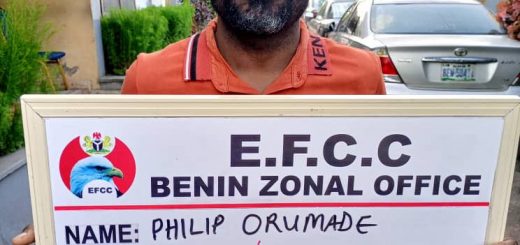 KEN
BEN-504
E.F.C.C
BENIN ZONAL OFFICE
EFCC
NAME: PHILIP ORUMADE